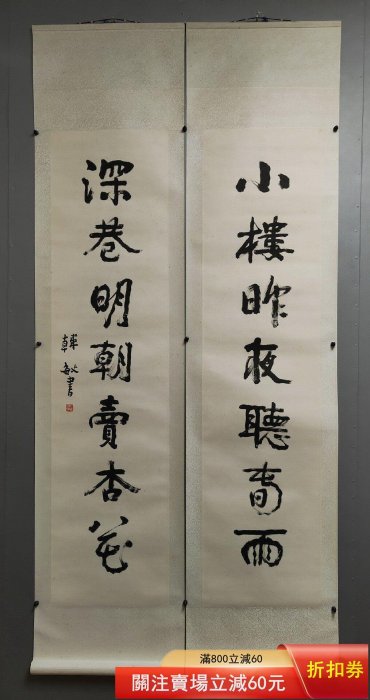 小樓昨夜聽春雨
深巷明朝賣杏花
韓敏書
滿800立減60
關注賣場立減60元
折扣券